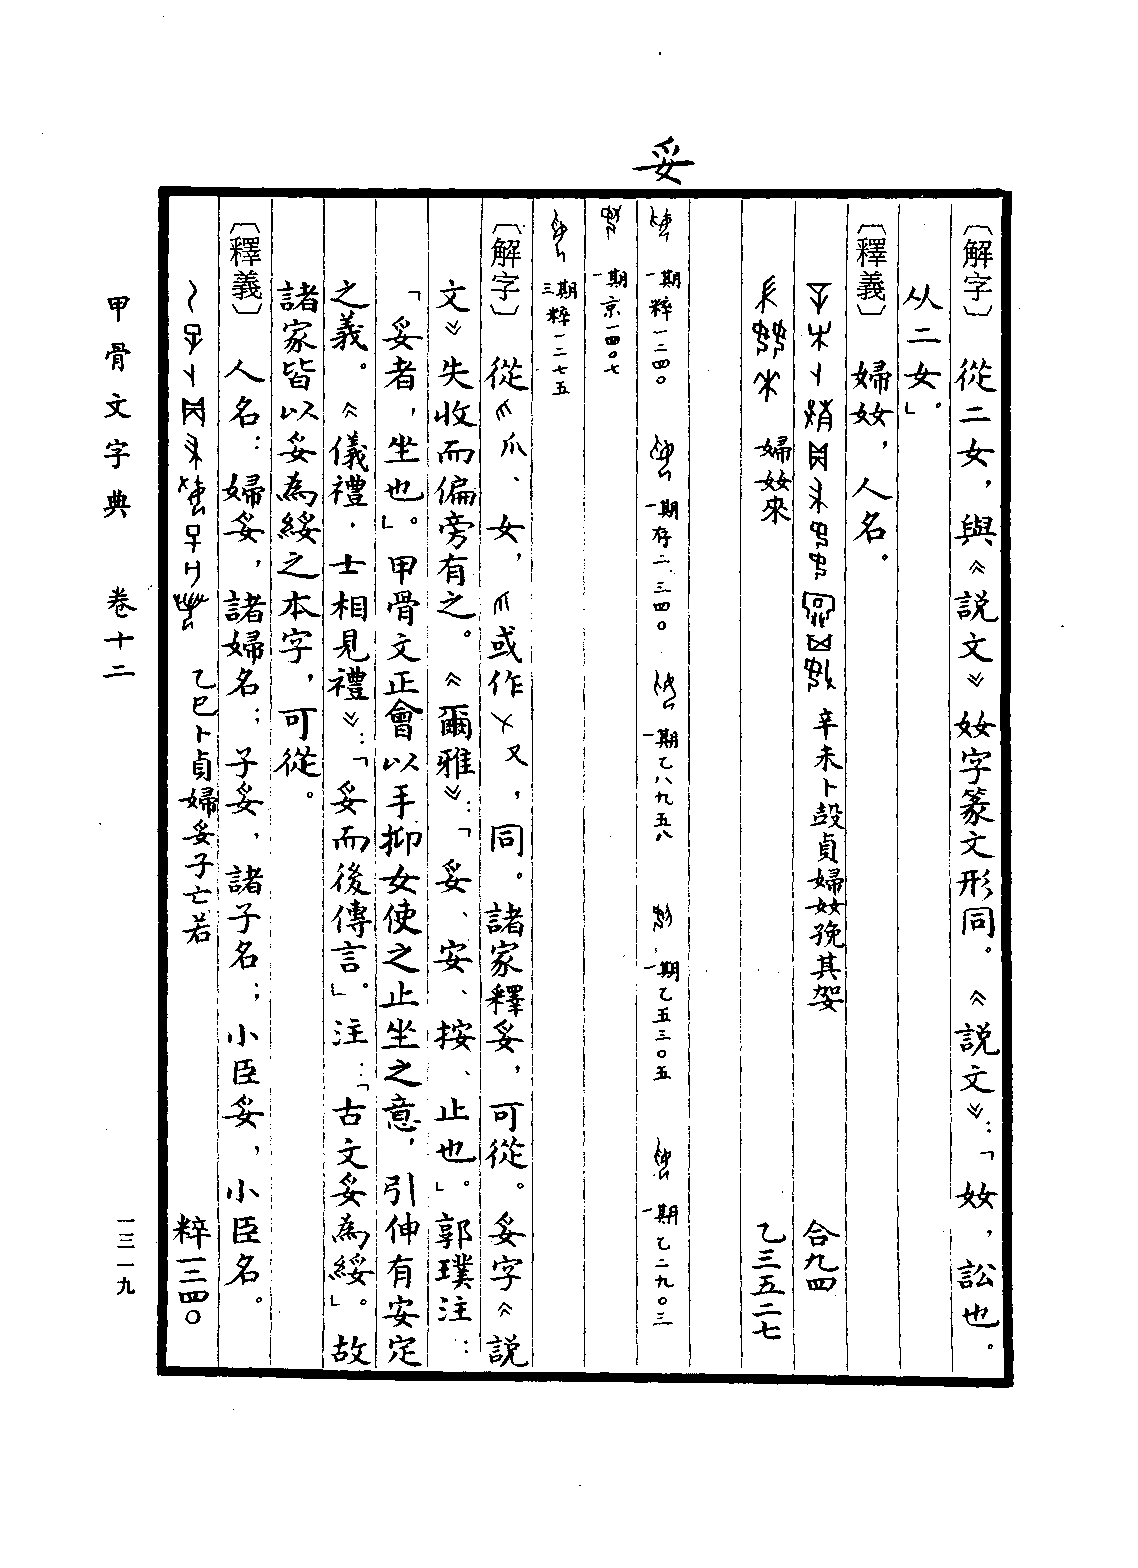 妥
〔解字〕從二女，與《說文》奻字篆文形同。《說文》：「奻，訟也。
从二女」。
〔釋義〕婦奻，人名。
辛未卜㱿貞婦奻娩其㚸 合九四
婦奻來 乙三五二七
一期粹一二四〇 一期存二.三四〇 一期乙八九五八 一期乙五三〇五 一期乙二九〇三
一期京一四〇七
三期粹一二七五
〔解字〕從爪、女，或作又，同。諸家釋妥，可從。妥字《說
文》失收而偏旁有之。《爾雅》：「妥、安、按、止也」。郭璞注：
「妥者，坐也」。甲骨文正會以手抑女使之止坐之意，引伸有安定
之義。《儀禮·士相見禮》：「妥而後傳言」。注：「古文妥為綏」。故
諸家皆以妥為綏之本字，可從。
〔釋義〕人名：婦妥，諸婦名；子妥，諸子名；小臣妥，小臣名。
乙巳卜貞婦妥子亡若 粹一二四〇
甲骨文字典 卷十二 一三一九